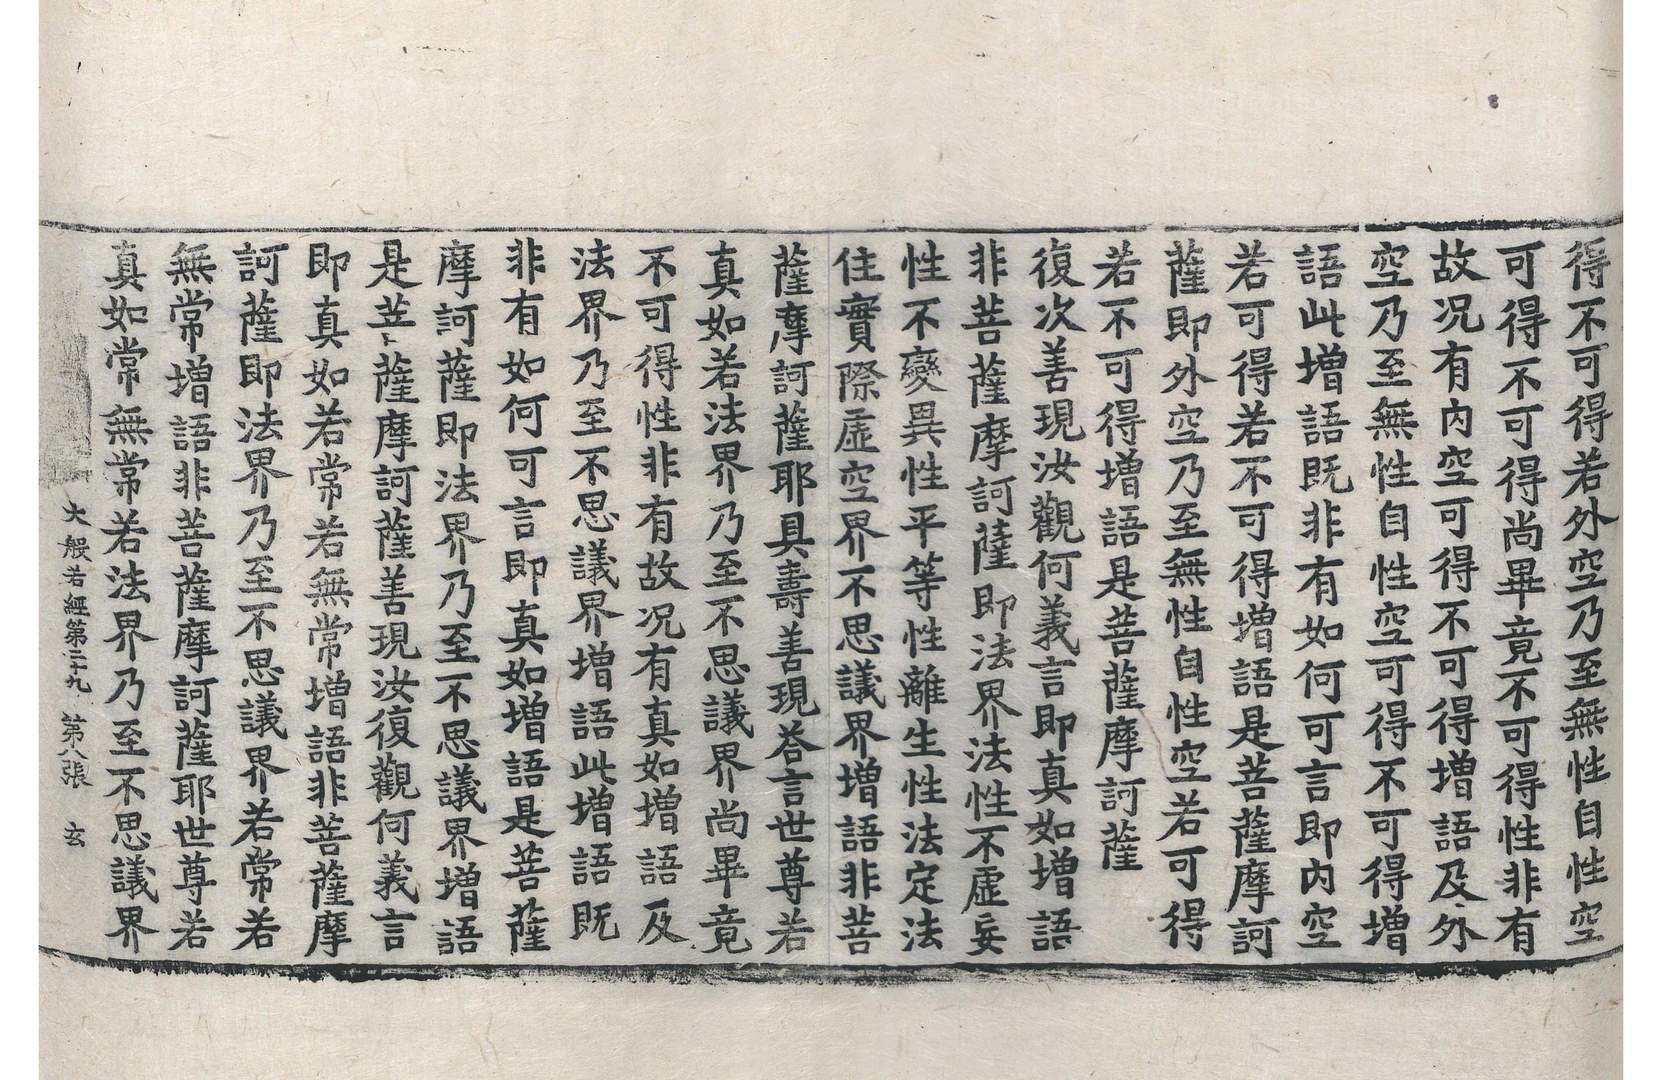 得不可得若外空乃至無性自性空
可得不可得尚畢竟不可得性非有
故况有內空可得不可得增語及外
空乃至無性自性空可得不可得增
語此增語既非有如何可言即內空
若可得若不可得增語是菩薩摩訶
薩即外空乃至無性自性空若可得
若不可得增語是菩薩摩訶薩
復次善現汝觀何義言即真如增語
非菩薩摩訶薩即法界法性不虛妄
性不變異性平等性離生性法定法
住實際虛空界不思議界增語非菩
薩摩訶薩耶具壽善現荅言世尊若
真如若法界乃至不思議界尚畢竟
不可得性非有故况有真如增語及
法界乃至不思議界增語此增語既
非有如何可言即真如增語是菩薩
摩訶薩即法界乃至不思議界增語
是菩薩摩訶薩善現汝復觀何義言
即真如若常若無常增語非菩薩摩
訶薩即法界乃至不思議界若常若
無常增語非菩薩摩訶薩耶世尊若
真如常無常若法界乃至不思議界
大般若經第三十九 第八張 玄